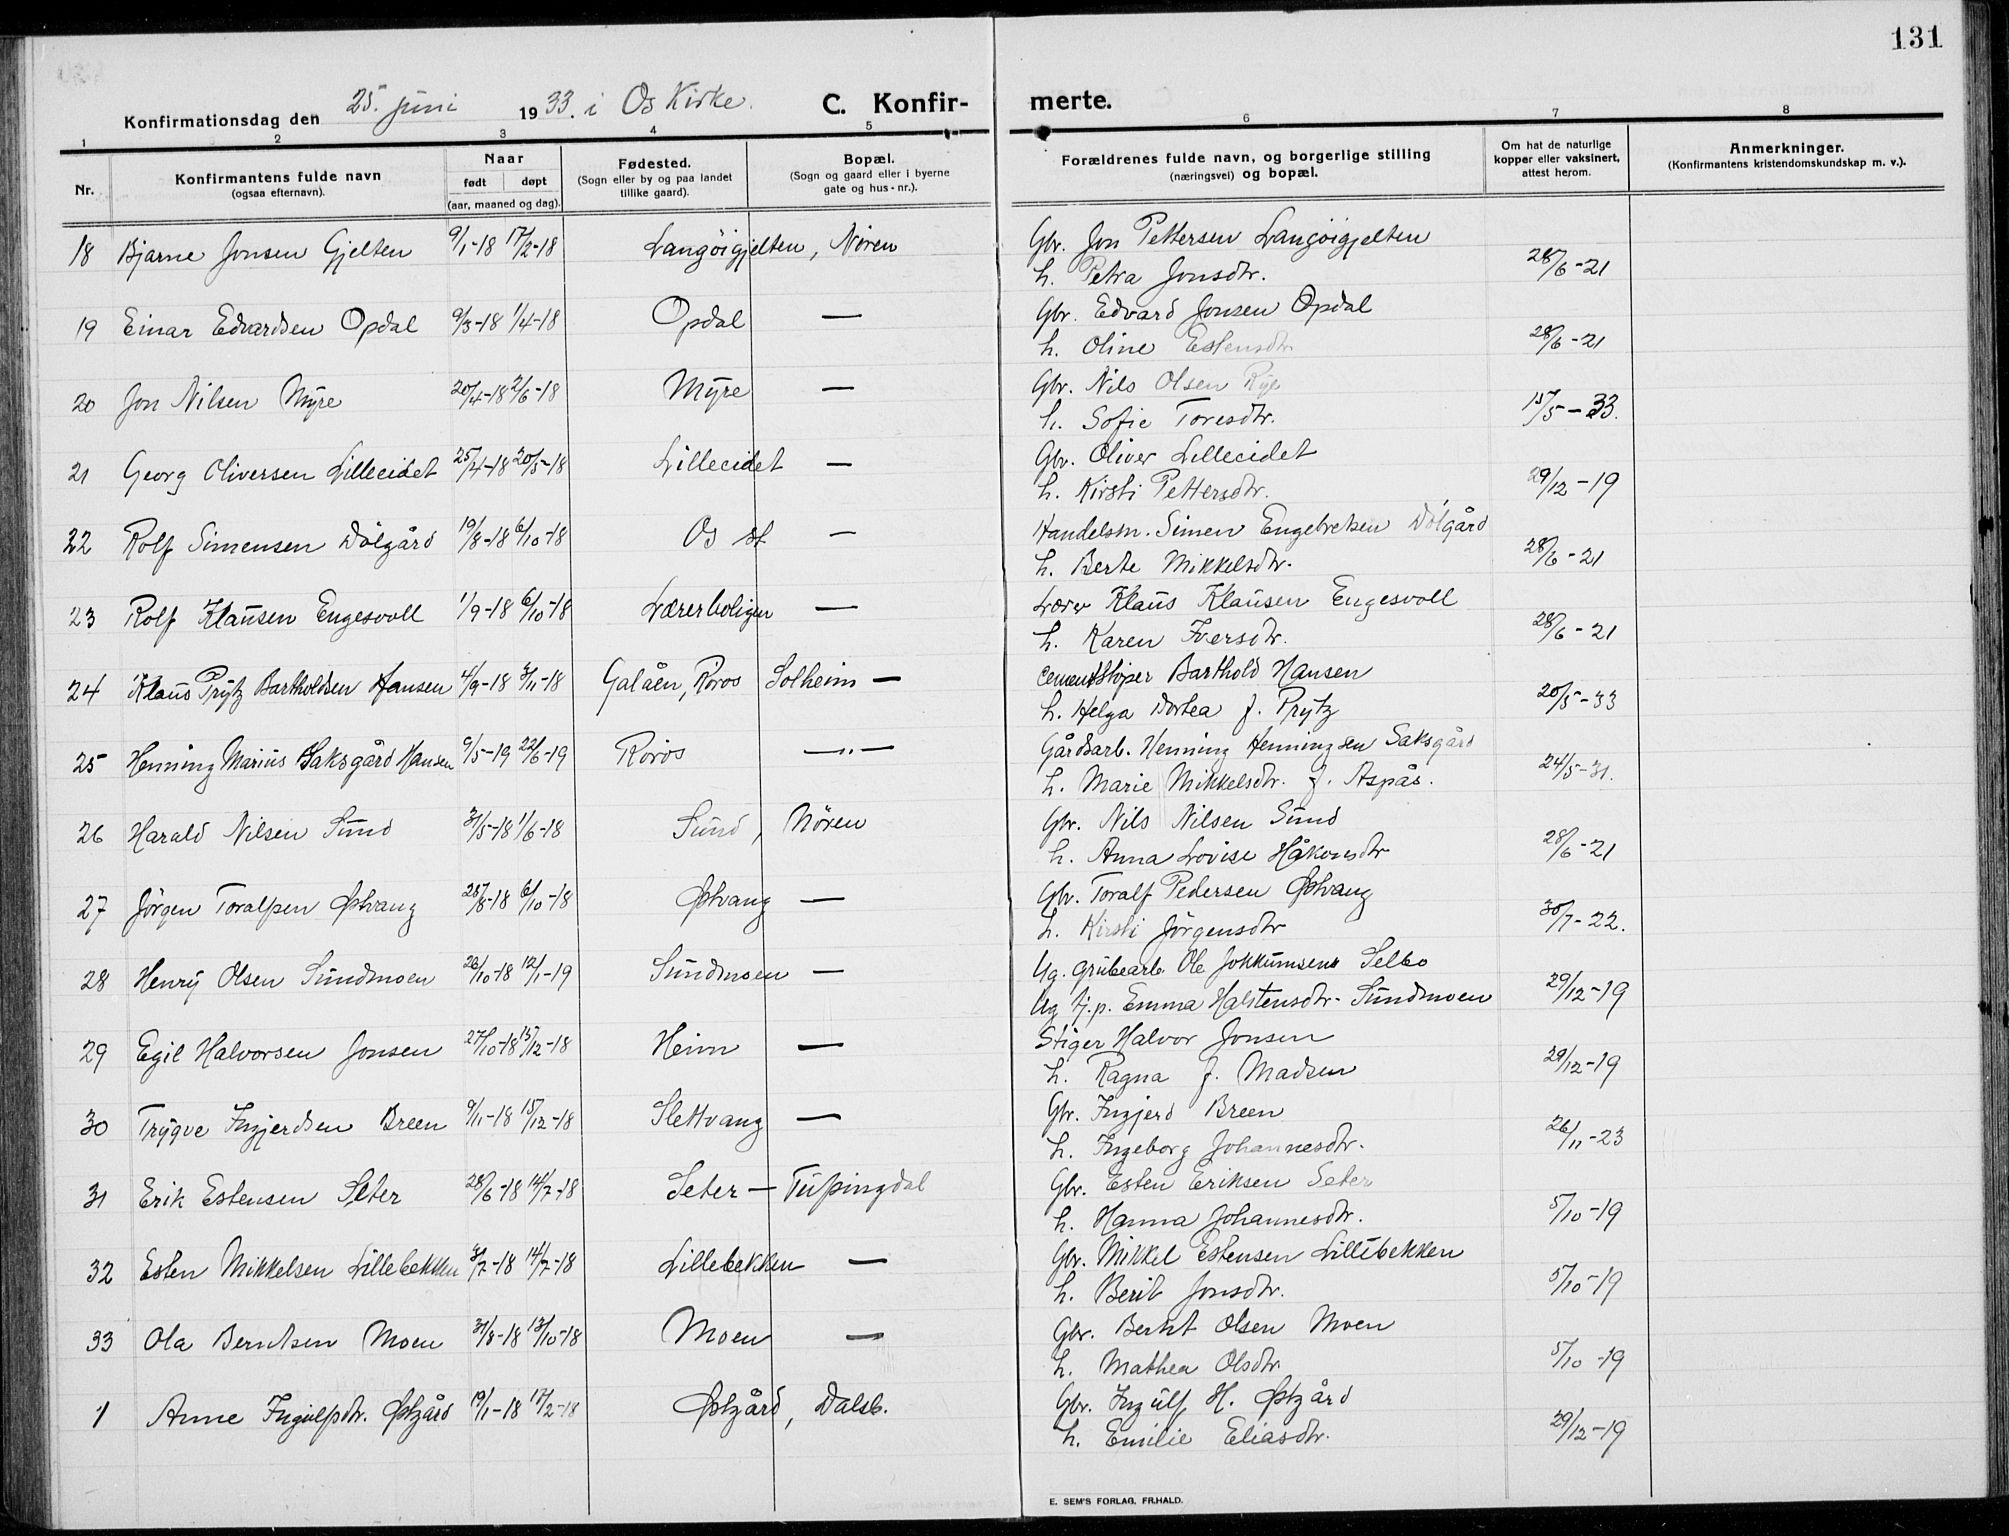 131
Konfirmationsdag den 25. juni 1933. i Os Kirke. C. Konfir- merte.
1 2 3 4 5 6 7 8
Nr. Konfirmantens fulde navn (ogsaa efternavn). Naar født døpt (aar, maaned og dag). Fødested. (Sogn eller by og paa landet tillike gaard). Bopæl. (Sogn og gaard eller i byerne gate og hus-nr.). Forældrenes fulde navn, og borgerlige stilling (næringsvei) og bopæl. Om hat de naturlige kopper eller vaksinert, attest herom. Anmerkninger. (Konfirmantens kristendomskundskap m. v.).
18 Bjarne Jonsen Gjelten 9/1-18 17/2-18 Langöigjelten, Nören Gbr. Jon Pettersen Langöigjelten
h. Petra Jonsdtr. 28/6-21
19 Einar Edvardsen Opdal 9/3-18 1/4-18 Opdal — Gbr. Edvard Jonsen Opdal
h. Oline Estensdtr. 28/6-21
20 Jon Nilsen Myre 20/4-18 2/6-18 Myre — Gbr. Nils Olsen
h. Sofie Toresdtr. 15/5-33.
21 Georg Oliversen Lilleeidet 25/4-18 20/5-18 Lilleeidet — Gbr. Oliver Lilleeidet
h. Kirsti Pettersdtr. 29/12-19
22 Rolf Simensen Dölgård 19/8-18 6/10-18 Os st. — Handelsm. Simen Engebretsen Dölgård
h. Berte Mikkelsdtr. 28/6-21
23 Rolf Klaüsen Engesvoll 1/9-18 6/10-18 Lærerboligen — Lærer Klaüs Klaüsen Engesvoll
h. Karen Iversdtr. 28/6-21
24 Klaüs Prytz Bartholdsen Hansen 4/9-18 3/11-18 Galåen, Röros Solheim — Cementstöper Barthold Hansen
h. Helga Dortea f. Prytz 20/5-33
25 Henning Mariüs Saksgård Hansen 9/5-19 22/6-19 Röros —"— Gårdsarb. Henning Henningsen Saksgård
h. Marie Mikkelsdtr. f. Aspås. 24/5-31.
26 Harald Nilsen Sünd 31/5-18 1/6-18 Sünd, Nören Gbr. Nils Nilsen Sünd
h. Anna Lovise Håkonsdtr 28/6-21
27 Jörgen Toralfsen Østvang 25/8-18 6/10-18 Østvang — Gbr. Toralf Pedersen Østvang
h. Kirsti Jörgensdtr 30/7-22.
28 Henry Olsen Sündmoen 26/10-18 12/1-19 Sündmoen — Ug. grübearb. Ole Jokkümsen Selbo
Ug tj.p. Emma Halstensdtr. Sündmoen 29/12-19
29 Egil Halvorsen Jonsen 27/10-18 15/12-18 Heim — Stiger Halvor Jonsen
h. Ragna f. Madsen 29/12-19
30 Trygve Ingjerdsen Breen 9/11-18 15/12-18 Slettvang — Gbr. Ingjerd Breen
h. Ingeborg Johannesdtr. 26/11-23
31 Erik Estensen Seter 28/6-18 14/7-18 Seter — Tüfsingdal Gbr. Esten Eriksen Seter
h. Hanna Johannesdtr. 5/10-19
32 Esten Mikkelsen Lillebekken 3/7-18 14/7-18 Lillebekken — Gbr. Mikkel Estensen Lillebekken
h. Berit Jonsdtr. 5/10-19
33 Ola Berntsen Moen 31/8-18 13/10-18 Moen — Gbr. Bernt Olsen Moen
h. Mathea Olsdtr. 5/10-19
1 Anne Ingülfsdtr. Østgård 19/1-18 17/2-18 Østgård, Dalsb. Gbr. Ingülf H. Østgård
h. Emilie Eliasdtr. 29/12-19
E. SEM'S FORLAG, FR.HALD.